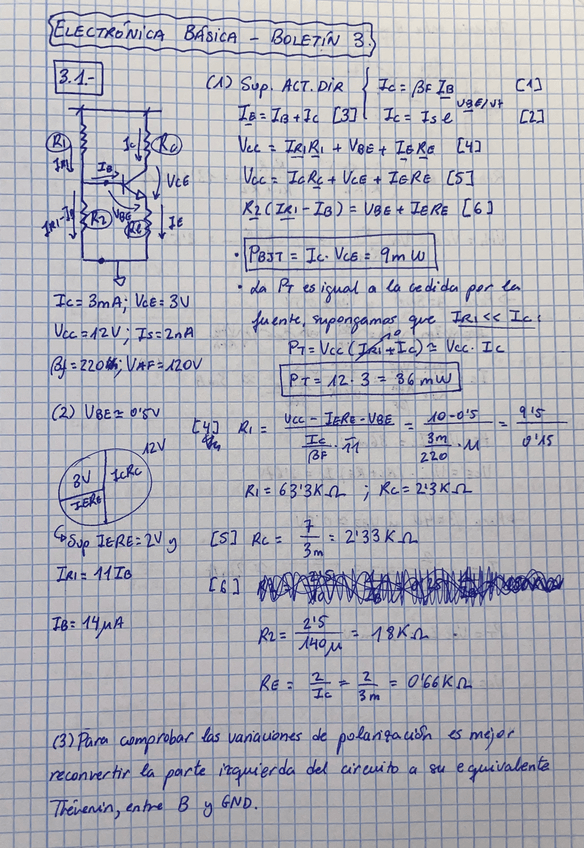 ELECTRÓNICA BÁSICA - BOLETÍN 3.
3.1.-
(1) Sup. ACT. DIR { Ic = βF IB [1]
IE = IB + Ic [3] Ic = Is e^VBE/VT [2]
Vcc = IR1R1 + VBE + IERE [4]
Vcc = IcRc + VCE + IERE [5]
R2 (IR1 - IB) = VBE + IERE [6]
R1 Ic Rc
IR1 IB
VCE
IR1-IB R2 VBE RE IE
• PBJT = Ic · VCE = 9mW
• La PT es igual a la cedida por la
fuente, supongamos que IR1 << Ic:
PT = Vcc (IR1 + Ic) ≃ Vcc · Ic
0
PT = 12 · 3 = 36 mW
Ic = 3mA; VCE = 3V
Vcc = 12V; Is = 2nA
βf = 220; VAF = 120V
(2) VBE ≃ 0'5V
12V
3V IcRc
IERE
↳ Sup IERE = 2V y
IR1 = 11 IB
IB = 14μA
[4] R1 = (Vcc - IERE - VBE) / (Ic/βF · 11) = (10 - 0'5) / (3m/220 · 11) = 9'5 / 0'15
R1 = 63'3KΩ ; Rc = 2'3KΩ
[5] Rc = 7/3m = 2'33KΩ
[6]
R2 = 2'5/140μ = 18KΩ .
RE = 2/Ic = 2/3m = 0'66KΩ
(3) Para comprobar las variaciones de polarización es mejor
reconvertir la parte izquierda del circuito a su equivalente
Thévenin, entre B y GND.